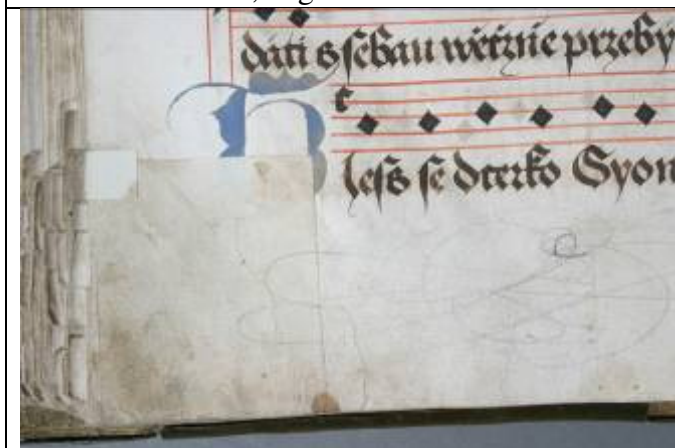 dáti s ſebau wěcznie przeby
Tieſs ſe dcerko Syon